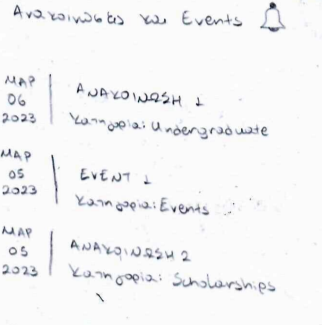 Ανακοινώσεις και Events
ΜΑΡ
06
2023
ΑΝΑΚΟΙΝΩΣΗ 1
Κατηγορία: Undergraduate
ΜΑΡ
05
2023
EVENT 1
Κατηγορία: Events
ΜΑΡ
05
2023
ΑΝΑΚΟΙΝΩΣΗ 2
Κατηγορία: Scholarships